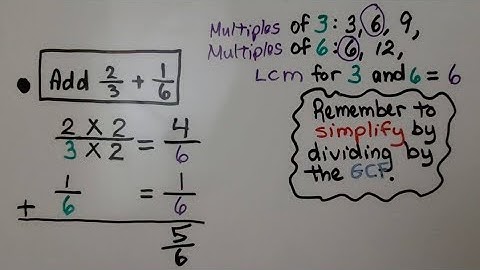 Multiples of 3: 3, 6, 9,
Multiples of 6: 6, 12,
LCM for 3 and 6 = 6
Add 2/3 + 1/6
2 X 2 / 3 X 2 = 4/6
+ 1/6 = 1/6
5/6
Remember to
simplify by
dividing by
the GCF.